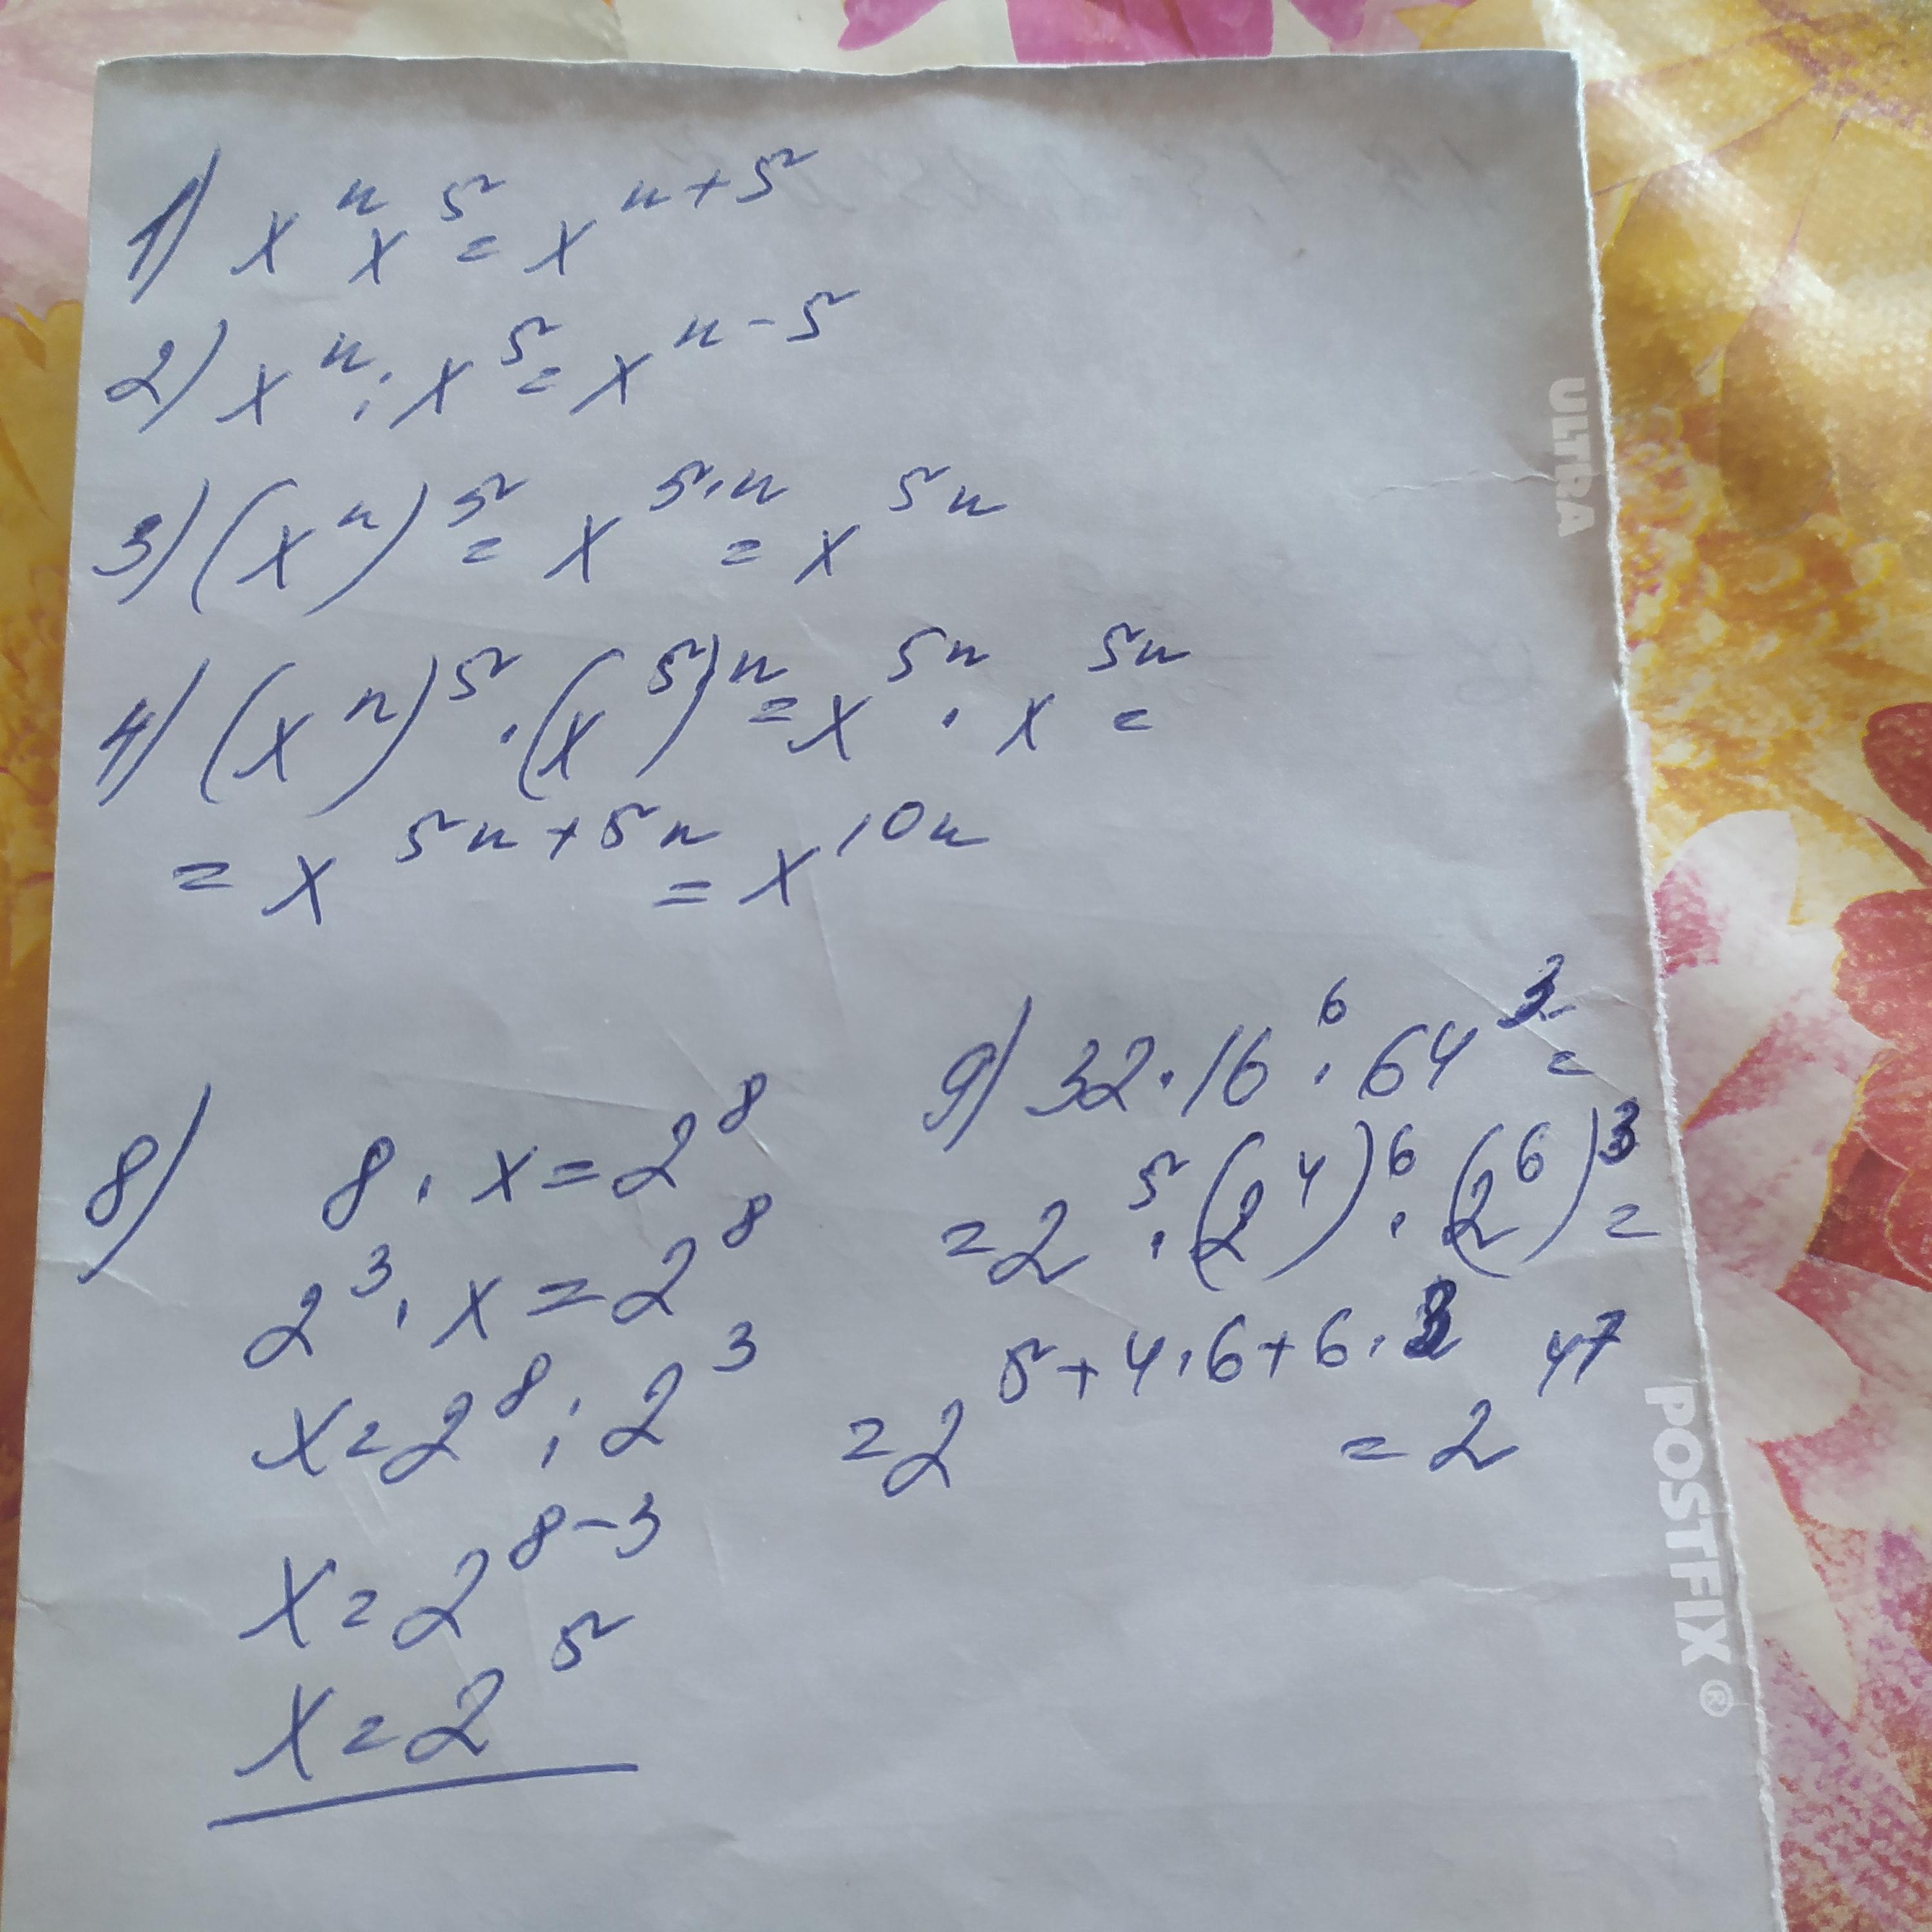 1) xⁿ x⁵ = xⁿ⁺⁵
2) xⁿ : x⁵ = xⁿ⁻⁵
3) (xⁿ)⁵ = x⁵·ⁿ = x⁵ⁿ
4) (xⁿ)⁵ · (x⁵)ⁿ = x⁵ⁿ · x⁵ⁿ =
= x⁵ⁿ⁺⁵ⁿ = x¹⁰ⁿ
8) 8 · x = 2⁸
2³ · x = 2⁸
x = 2⁸ : 2³
x = 2⁸⁻³
x = 2⁵
9) 32 · 16⁶ · 64³ =
= 2⁵ · (2⁴)⁶ · (2⁶)³ =
= 2⁵⁺⁴·⁶⁺⁶·³ = 2⁴⁷
ULTRA
POSTFIX®